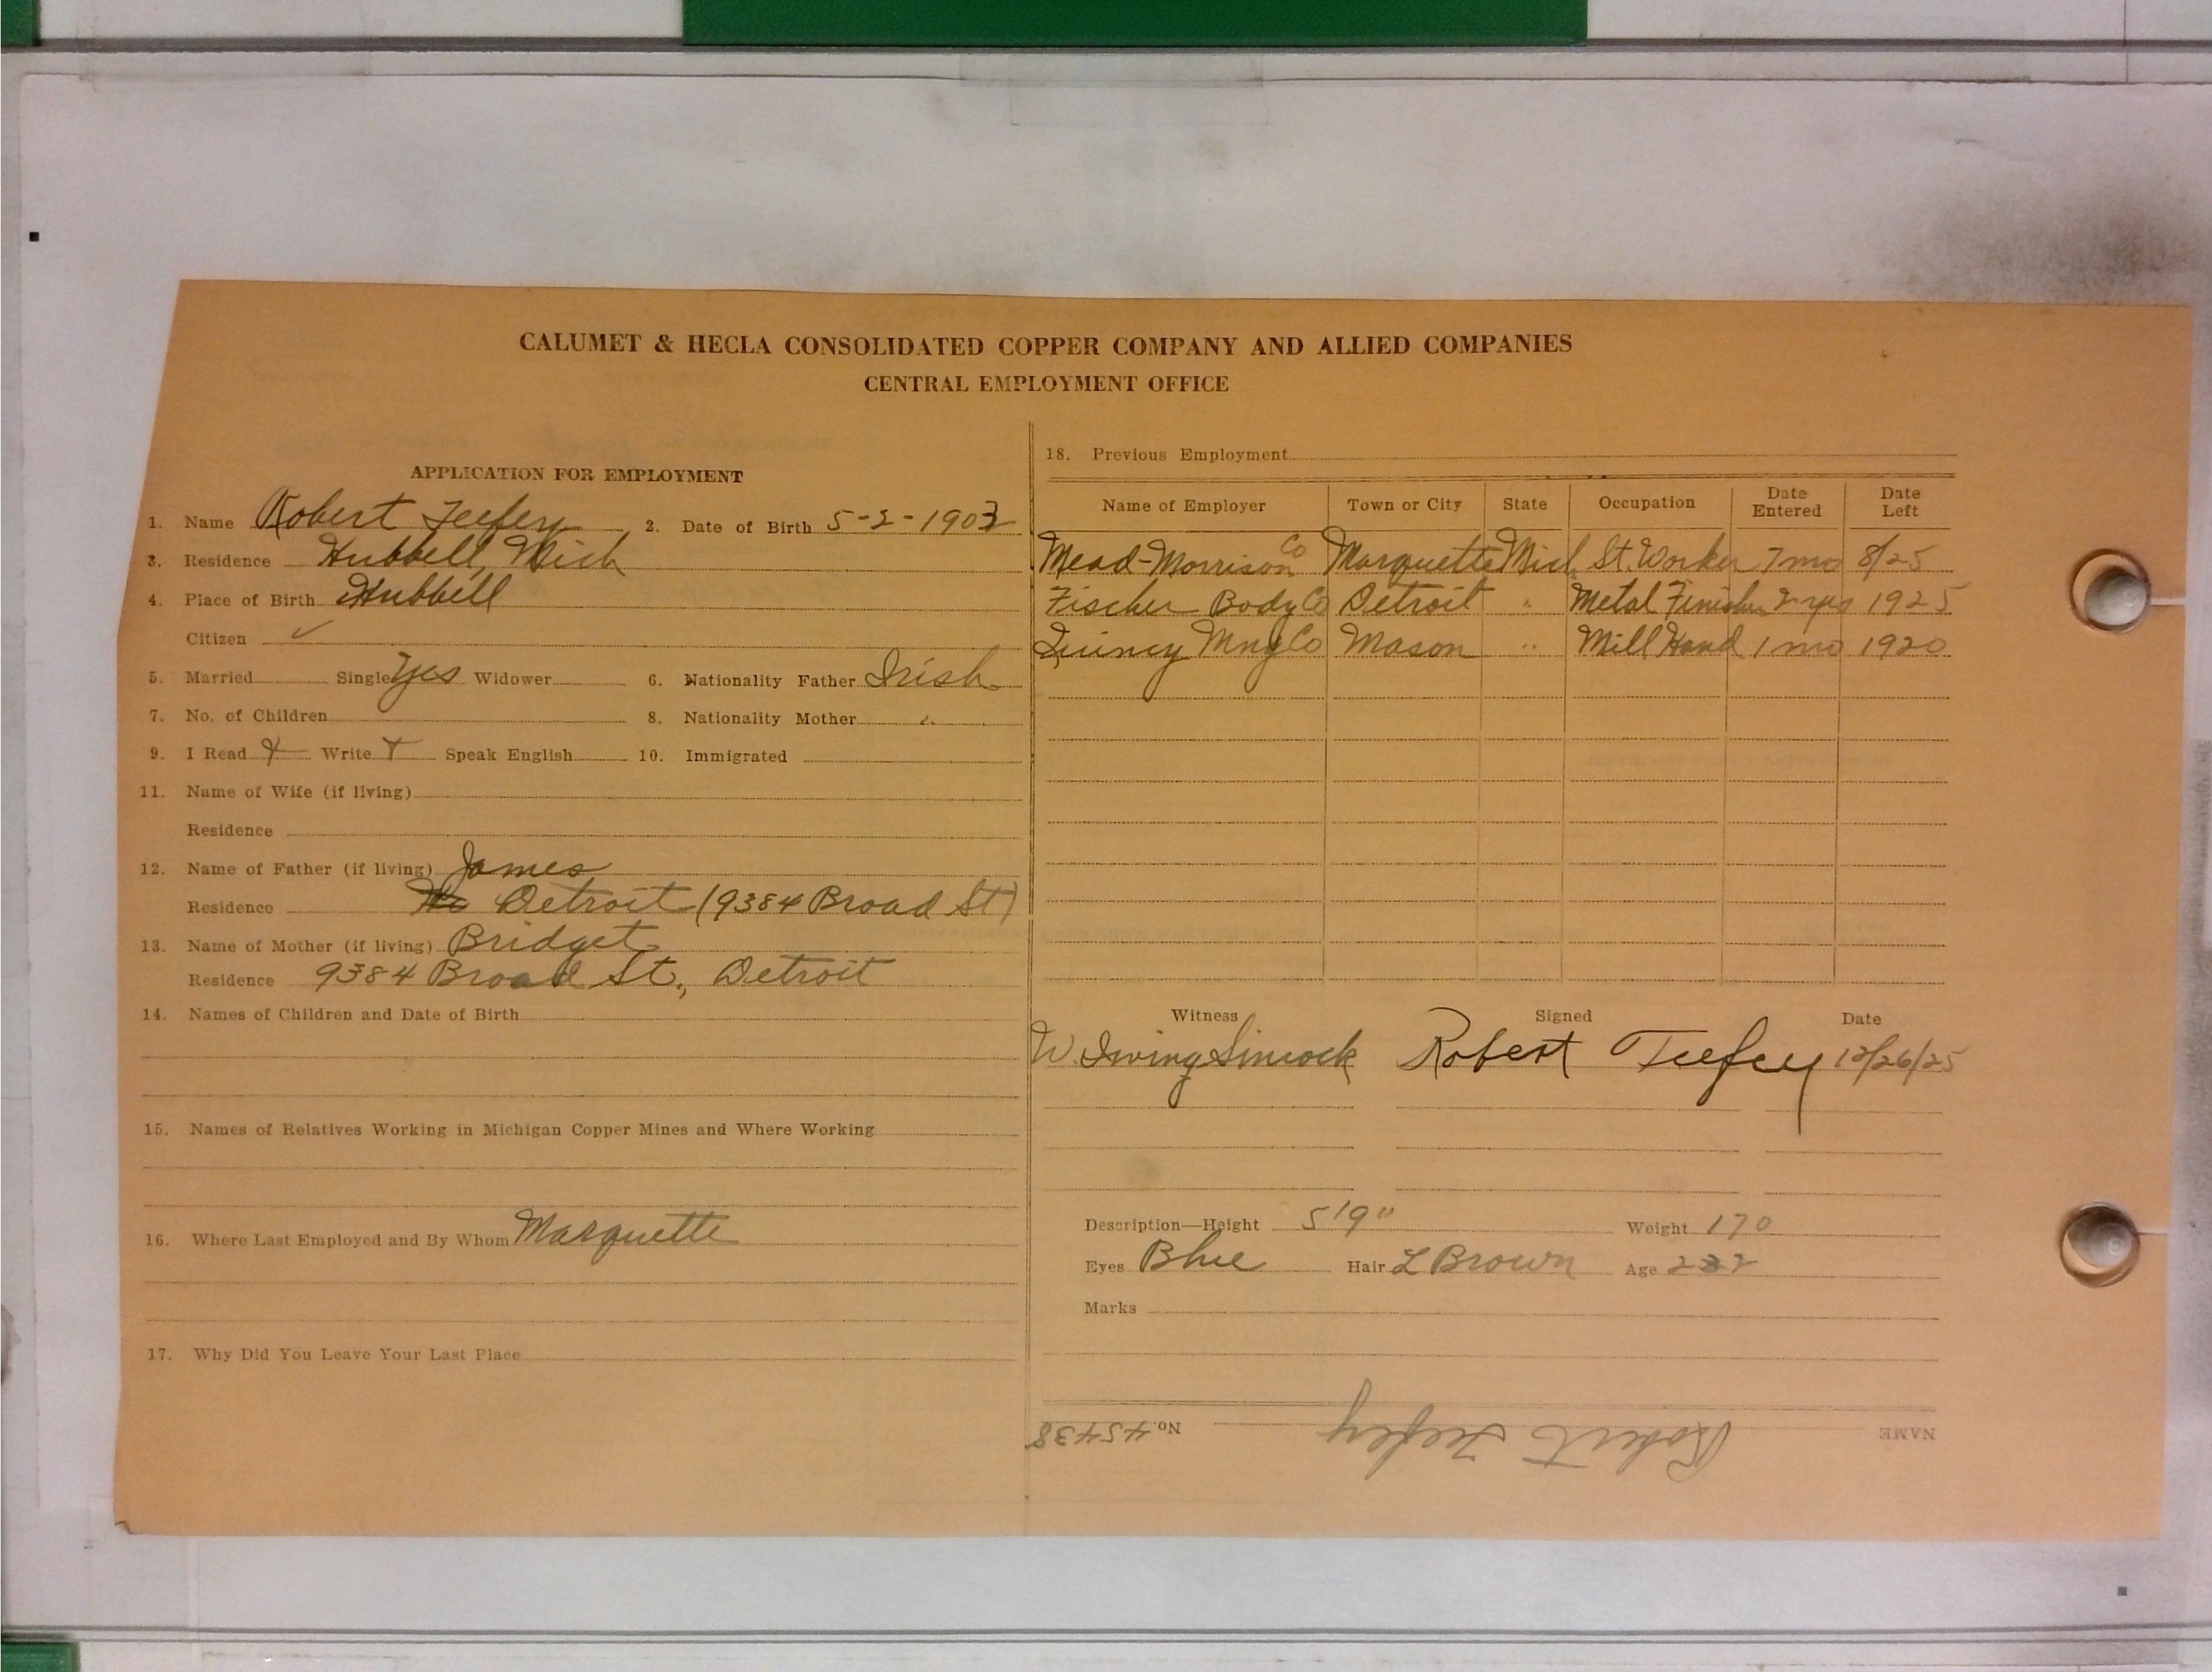 CALUMET & HECLA CONSOLIDATED COPPER COMPANY AND ALLIED COMPANIES
CENTRAL EMPLOYMENT OFFICE
APPLICATION FOR EMPLOYMENT
1. Name Robert Teefey 2. Date of Birth 5-2-1903
3. Residence Hubbell, Mich
4. Place of Birth Hubbell
Citizen ✓
5. Married Single Yes Widower 6. Nationality Father Irish
7. No. of Children 8. Nationality Mother "
9. I Read + Write + Speak English 10. Immigrated
11. Name of Wife (if living)
Residence
12. Name of Father (if living) James
Residence Detroit (9384 Broad St)
13. Name of Mother (if living) Bridget
Residence 9384 Broad St., Detroit
14. Names of Children and Date of Birth
15. Names of Relatives Working in Michigan Copper Mines and Where Working
16. Where Last Employed and By Whom Marquette
17. Why Did You Leave Your Last Place
18. Previous Employment
Name of Employer Town or City State Occupation Date Entered Date Left
Mead-Morrison Co Marquette Mich St. Worker 7 mo 8/25
Fischer Body Co Detroit " Metal Finisher 2 yrs 1925
Quincy Mng Co Mason " Mill Hand 1 mo 1920
Witness Signed Date
W. Irving Sincock Robert Teefey 12/26/25
Description—Height 5'9" Weight 170
Eyes Blue Hair L Brown Age 22
Marks
NAME Robert Teefey No. 45438